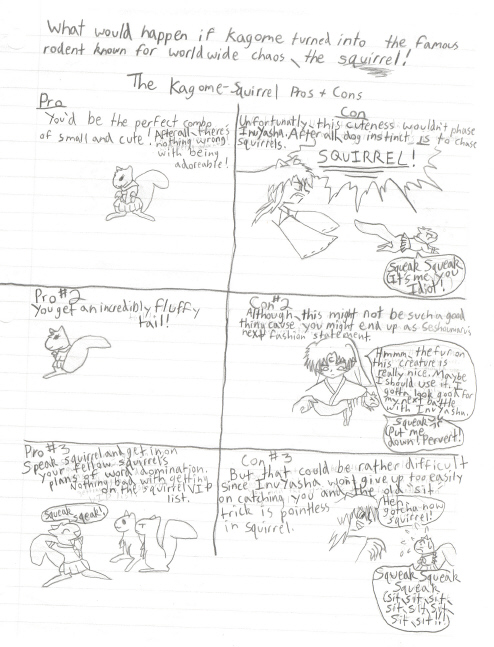 What would happen if Kagome turned into the famous
rodent known for worldwide chaos, the squirrel!
The Kagome-Squirrel Pros + Cons
Pro
You'd be the perfect combo
of small and cute! After all, there's
nothing wrong
with being
adoreable!
Con
Unfortunatly, this cuteness wouldn't phase
InuYasha. After all, dog instinct is to chase
squirrels.
SQUIRREL!
Squeak Squeak
(It's me, you
Idiot!)
Pro #2
You get an incredibly fluffy
tail!
Con #2
Although, this might not be such a good
thing cause you might end up as Sesshoumaru's
next fashion statement.
Hmmm, the fur on
this creature is
really nice. Maybe
I should use it. I
gotta look good for
my next battle
with InuYasha.
Squeak
(Put me
down! Pervert!)
Pro #3
Speak squirrel and get in on
your fellow squirrel's
plans of world domination.
Nothing bad with getting
on the squirrel VIP
list.
Squeak
squeak!
Con #3
But that could be rather difficult
since InuYasha won't give up too easily
on catching you and the old "sit"
trick is pointless
in squirrel.
Heh,
gotcha now
squirrel!
Squeak Squeak
Squeak
(sit, sit, sit,
sit, sit, sit,
sit, sit!!)